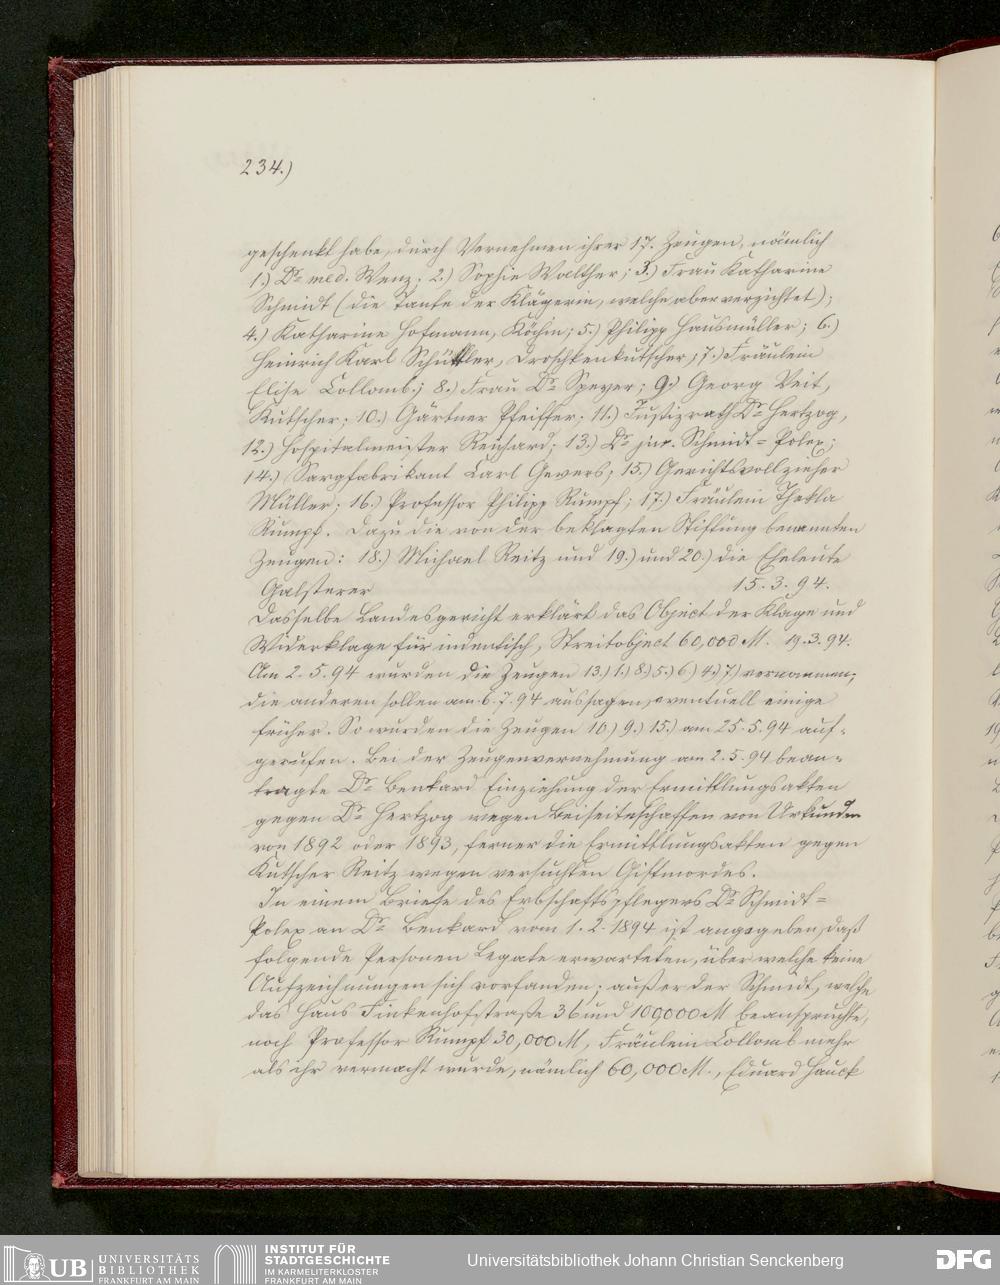 234.)
geschenkt habe, durch Vernehmen ihrer 17. Zeugen, nämlich
1.) Dr med. Wenz; 2.) Sophie Walther; 3.) Frau Katharine
Schmidt (die Tante der Klägerin, welche aber verzichtet);
4.) Katharine Hofmann, Köchin; 5.) Philipp Hausmüller; 6.)
Heinrich Karl Schüttler, Droschkenkutscher; 7.) Fräulein
Elise Collomb; 8.) Frau Dr Speyer; 9.) Georg Veit,
Kutscher; 10.) Gärtner Pfeiffer; 11.) Justizrath Dr Hertzog,
12.) Hospitalmeister Reuhard; 13.) Dr jur. Schmidt=Polex;
14.) Sargfabrikant Carl Gevers; 15.) Gerichtsvollzieher
Müller; 16.) Professor Philipp Rumpf; 17.) Fräulein Thekla
Rumpf. Dazu die von der beklagten Stiftung benannten
Zeugen: 18.) Michael Reitz und 19.) und 20.) die Eheleute
Galsterer 15.3.94.
Dasselbe Landesgericht erklärt das Object der Klage und
Widerklage für indentisch, Streitobject 60,000 M. 19.3.94.
Am 2.5.94 wurden die Zeugen 13.) 1.) 8.) 5.) 6.) 4.) 7.) vernommen;
die anderen sollen am 6.7.94 aussagen, eventuell einige
früher. So wurden die Zeugen 10.) 9.) 15.) am 25.5.94 auf-
gerufen. Bei der Zeugenvernehmung am 2.5.94 bean-
tragte Dr Benkard Einziehung der Ermittlungsakten
gegen Dr Hertzog wegen Beiseiteschaffen von Urkunden
von 1892 oder 1893, ferner die Ermittlungsakten gegen
Kutscher Reitz wegen versuchten Giftmordes.
In einem Briefe des Erbschaftspflegers Dr Schmidt=
Polex an Dr Benkard vom 1.2.1894 ist angegeben, daß
folgende Personen Legate erwarteten, über welche keine
Aufzeichnungen sich vorfanden; außer der Schmidt, welche
das Haus Finkenhofstraße 36 und 100000 M beanspruchte,
noch Professor Rumpf 30,000 M, Fräulein Collomb mehr
als ihr vermacht wurde, nämlich 60,000 M., Eduard Hauck
UB UNIVERSITÄTS
BIBLIOTHEK
FRANKFURT AM MAIN
INSTITUT FÜR
STADTGESCHICHTE
IM KARMELITERKLOSTER
FRANKFURT AM MAIN
Universitätsbibliothek Johann Christian Senckenberg
DFG